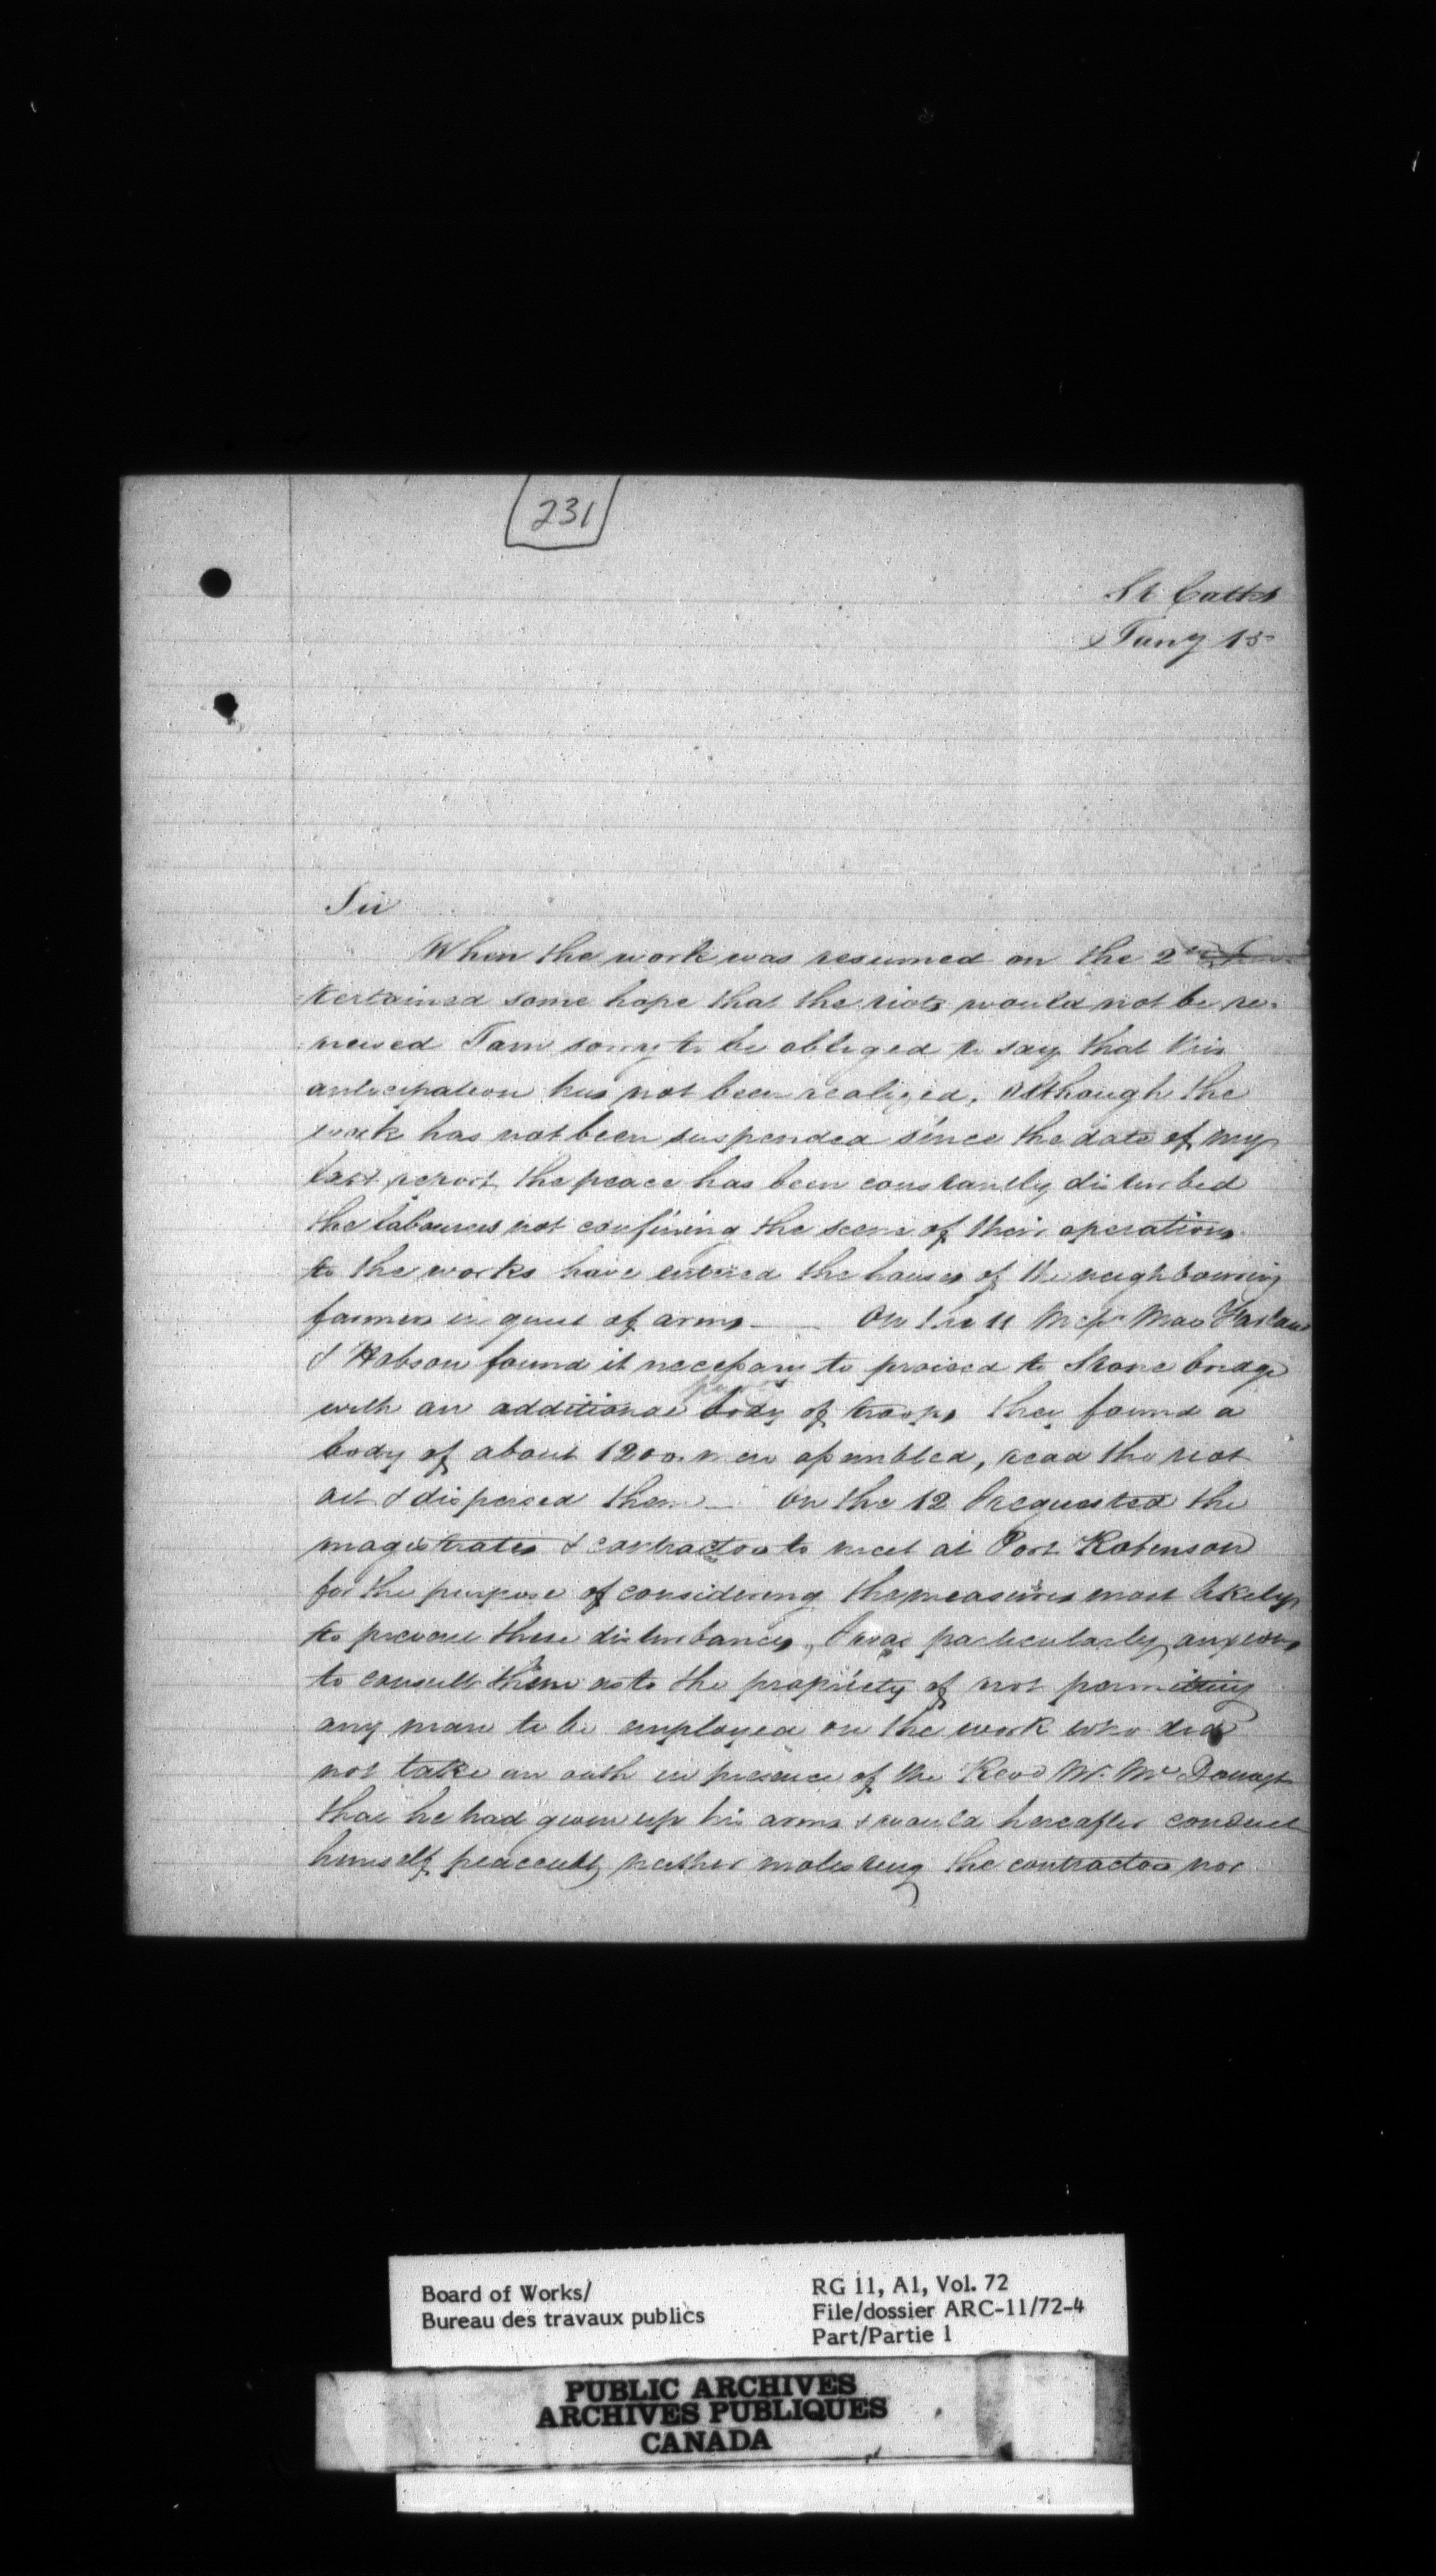 231
St Caths
Jany 15
Sir
When the work was resumed on the 2nd
tertained some hope that the riots would not be re-
newed I am sorry to be obliged to say that this
anticipation has not been realized, Although the
work has not been suspended since the date of my
last report the peace has been constantly disturbed
the labourers not confining the scene of their operations
to the works have entered the houses of the neighbouring
farmers in quest of arms — On the 11 Messrs Mac Farland
& Hobson found it necessary to proceed to Stone bridge
with an additional body of troops they found a
body of about 1200 men assembled, read the riot
act & dispersed them — On the 12 I requested the
magistrates & contractors to meet at Port Robinson
for the purpose of considering the measures most likely
to prevent these disturbances, I was particularly anxious
to consult them as to the propriety of not permitting
any man to be employed on the work who did
not take an oath in presence of the Revd Mr Mc Donagh
that he had given up his arms & would hereafter conduct
himself peaceably neither molesting the contractors nor
Board of Works/
Bureau des travaux publics
RG 11, A1, Vol. 72
File/dossier ARC-11/72-4
Part/Partie 1
PUBLIC ARCHIVES
ARCHIVES PUBLIQUES
CANADA